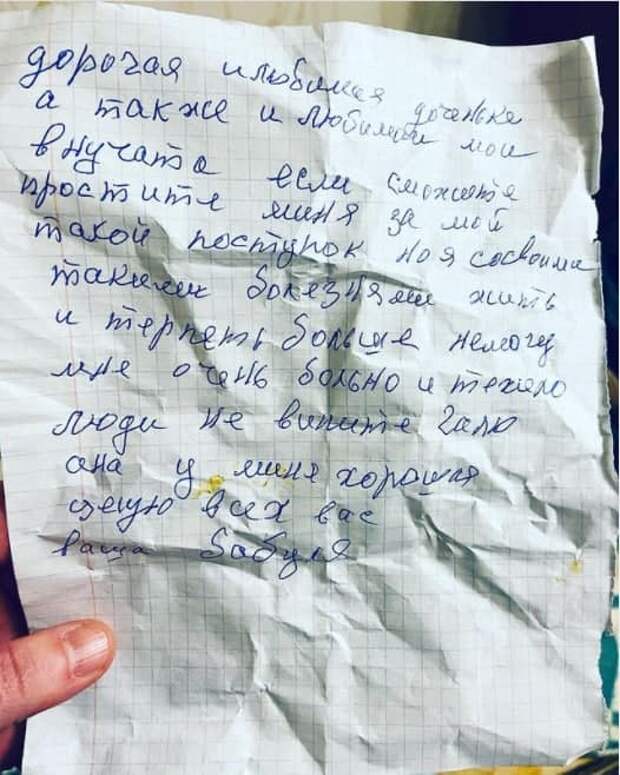 дорогая илюбимая доченька
а также и любимыи мои
внучата если сможите
простите миня за мой
такой поступок но я сосвоима
такими болезнями жить
и терпеть больше немогу
мне очень больно и тежело
люди не вините галю
она у миня хорошая
целую всех вас
ваша бабуля